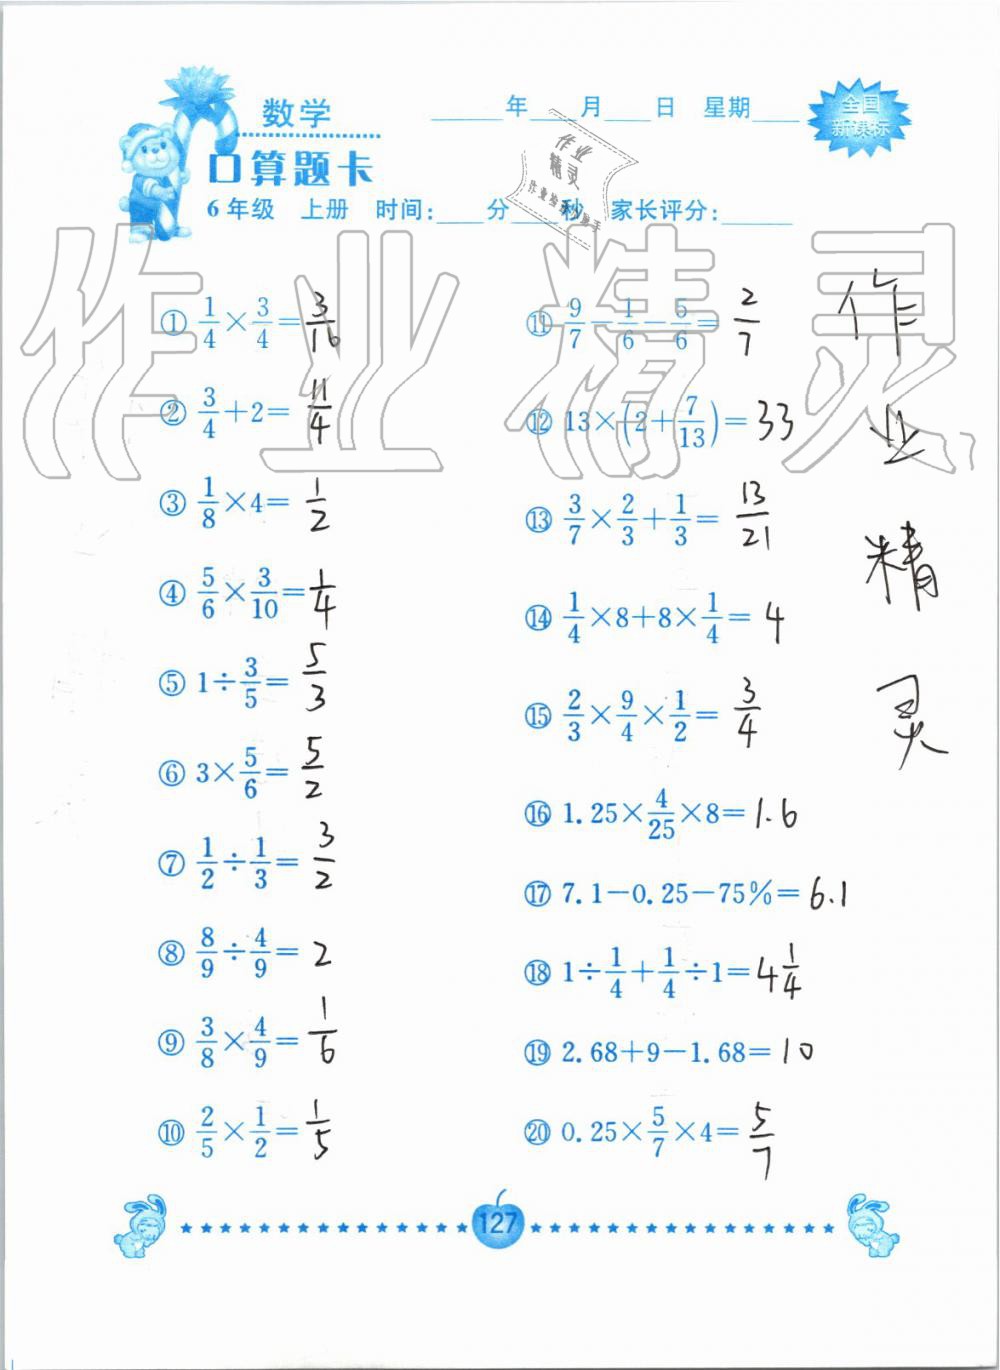 数学 ____年____月____日 星期____
全国
新课标
口算题卡
6年级 上册 时间:____分____秒 家长评分:______
作业
精灵
作业精灵
① 1/4×3/4=3/16
② 3/4+2=11/4
③ 1/8×4=1/2
④ 5/6×3/10=1/4
⑤ 1÷3/5=5/3
⑥ 3×5/6=5/2
⑦ 1/2÷1/3=3/2
⑧ 8/9÷4/9=2
⑨ 3/8×4/9=1/6
⑩ 2/5×1/2=1/5
⑪ 9/7-1/6-5/6=2/7
⑫ 13×(2+7/13)=33
⑬ 3/7×2/3+1/3=13/21
⑭ 1/4×8+8×1/4=4
⑮ 2/3×9/4×1/2=3/4
⑯ 1.25×4/25×8=1.6
⑰ 7.1-0.25-75%=6.1
⑱ 1÷1/4+1/4÷1=4 1/4
⑲ 2.68+9-1.68=10
⑳ 0.25×5/7×4=5/7
作
业
精
灵
127